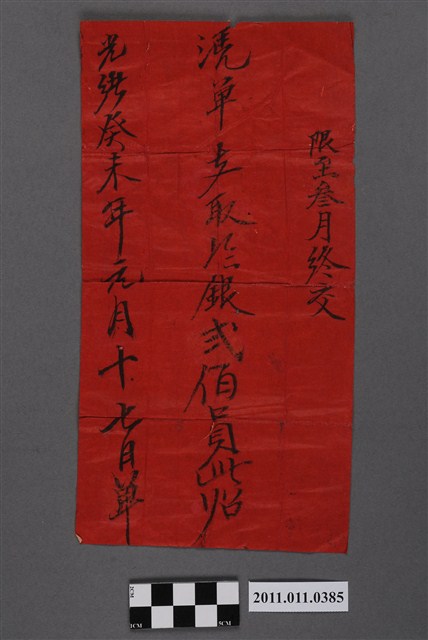 限至叁月終交
憑单支取佛銀弍佰員此炤
光緒癸未年元月十七日單
2011.011.0385
1CM
2CM
5CM